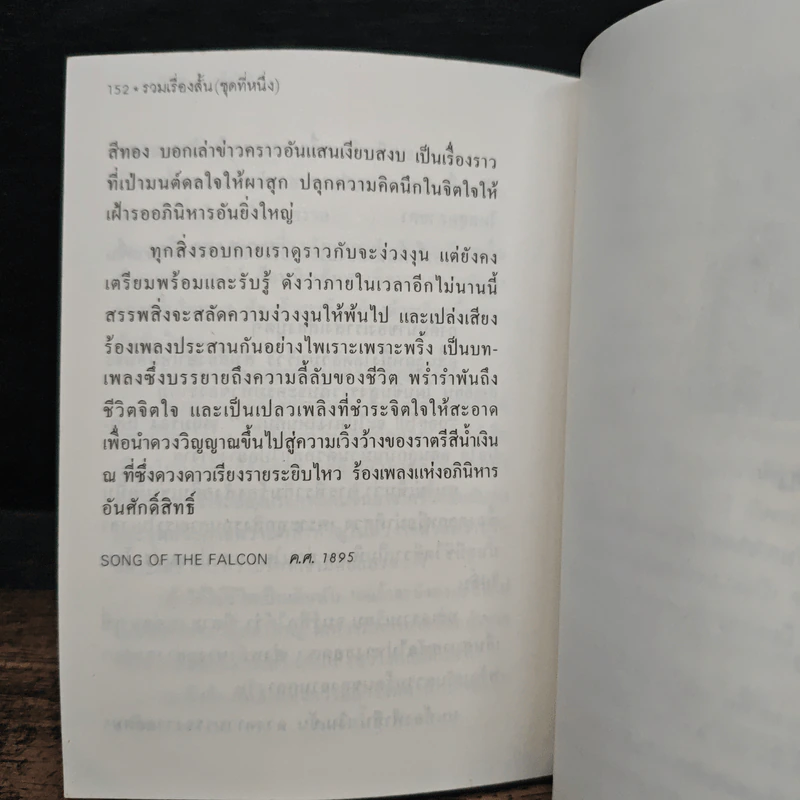 152 • รวมเรื่องสั้น (ชุดที่หนึ่ง)
สีทอง บอกเล่าข่าวคราวอันแสนเงียบสงบ เป็นเรื่องราว
ที่เป่ามนต์ดลใจให้ผาสุก ปลุกความคิดนึกในจิตใจให้
เฝ้ารออภินิหารอันยิ่งใหญ่
ทุกสิ่งรอบกายเราดูราวกับจะง่วงงุน แต่ยังคง
เตรียมพร้อมและรับรู้ ดังว่าภายในเวลาอีกไม่นานนี้
สรรพสิ่งจะสลัดความง่วงงุนให้พ้นไป และเปล่งเสียง
ร้องเพลงประสานกันอย่างไพเราะเพราะพริ้ง เป็นบท-
เพลงซึ่งบรรยายถึงความลี้ลับของชีวิต พร่ำรำพันถึง
ชีวิตจิตใจ และเป็นเปลวเพลิงที่ชำระจิตใจให้สะอาด
เพื่อนำดวงวิญญาณขึ้นไปสู่ความเวิ้งว้างของราตรีสีน้ำเงิน
ณ ที่ซึ่งดวงดาวเรียงรายระยิบไหว ร้องเพลงแห่งอภินิหาร
อันศักดิ์สิทธิ์
SONG OF THE FALCON ค.ศ. 1895